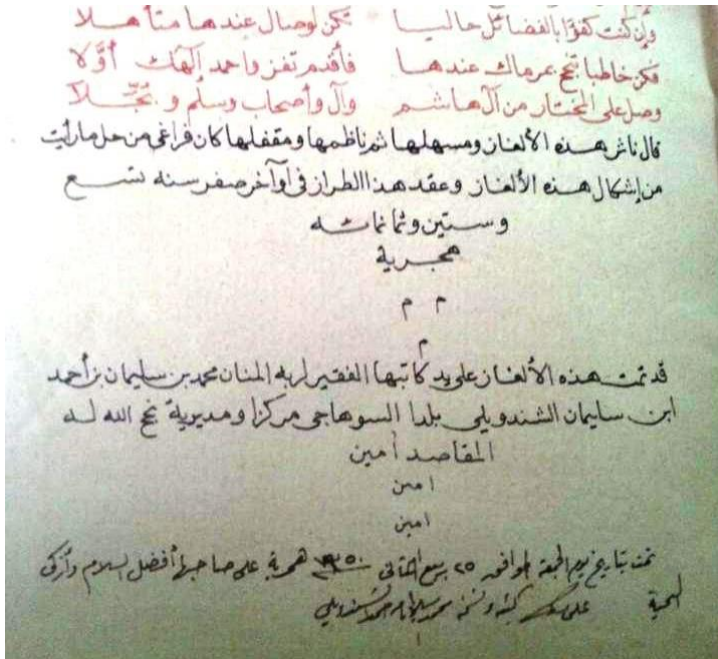 وإن كنت كفؤا بالفضائل حاليا    تكن لوصال عندها متأهلا
فكن خاطبا تنجح بمرماك عندها    فأقدم تفز واحمد إلهك أوّلا
وصل على المختار من آل هاشم    وآل وأصحاب وسلم و بجّلا
قال ناثر هذه الألغاز ومسهلها ثم ناظمها ومقفلها كان فراغى من حل ما رأيت
من إشكال هذه الألغاز وعقد هذا الطراز فى أوآخر صفر سنه تسع
وستين وثمانمائه
هجرية
م م
م
قد تمت هذه الألغاز على يد كاتبها الفقير لربه المنان محمد بن سليمان بن أحمد
ابن سليمان الشندويلى بلدا السوهاجى مركزا ومديرية نجح الله له
المقاصد أمين
امين
امين
تمت بتاريخ يوم الجمعة الموافق ٢٥ ربيع الثانى ١٣٥٠ هجرية على صاحبها أفضل السلام وأزكى
التحية    على يد كاتبه محمد سليمان أحمد الشندويلى